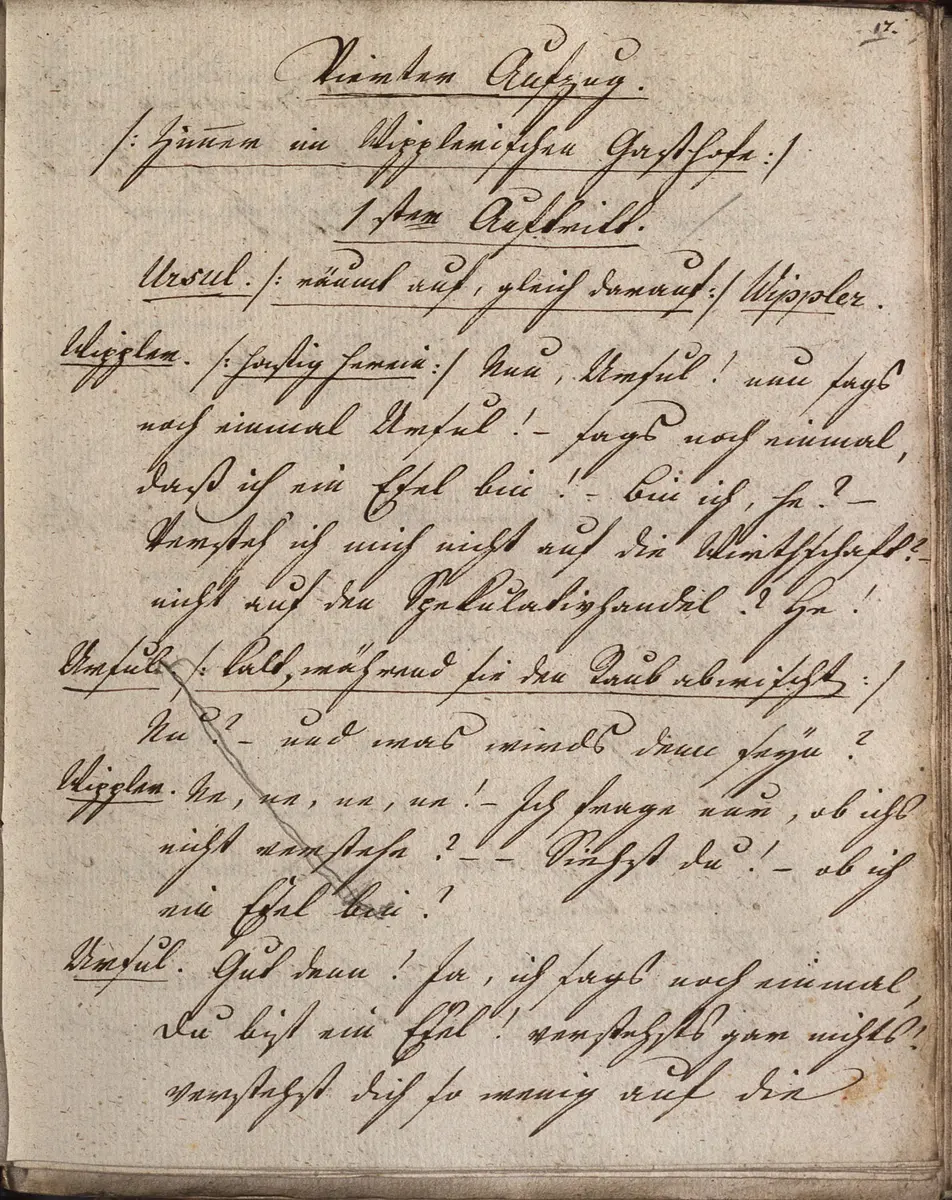 17.
Vierter Aufzug.
/: Zim̄er im Wipplerischen Gasthofe :/
1ster Auftritt.
Ursul. /: räumt auf, gleich darauf :/ Wippler.
Wippler. /: hastig herein :/ Nun, Ursul! nun sags
noch einmal Ursul! – sags noch einmal,
daß ich ein Esel bin! – Bin ich, he? –
Versteh ich mich nicht auf die Wirthschaft? –
nicht auf den Spekulativhandel? He!
Ursul. /: kalt, während sie den Staub abwischt :/
Nu? – und was wirds denn seyn?
Wippler. Ne, ne, ne, ne! – Ich frage nur, ob ichs
nicht verstehe? – – Siehst du! – ob ich
ein Esel bin?
Ursul. Gut denn! Ja, ich sags noch einmal,
Du bist ein Esel! verstehsts gar nichts!
verstehst dich so wenig auf die